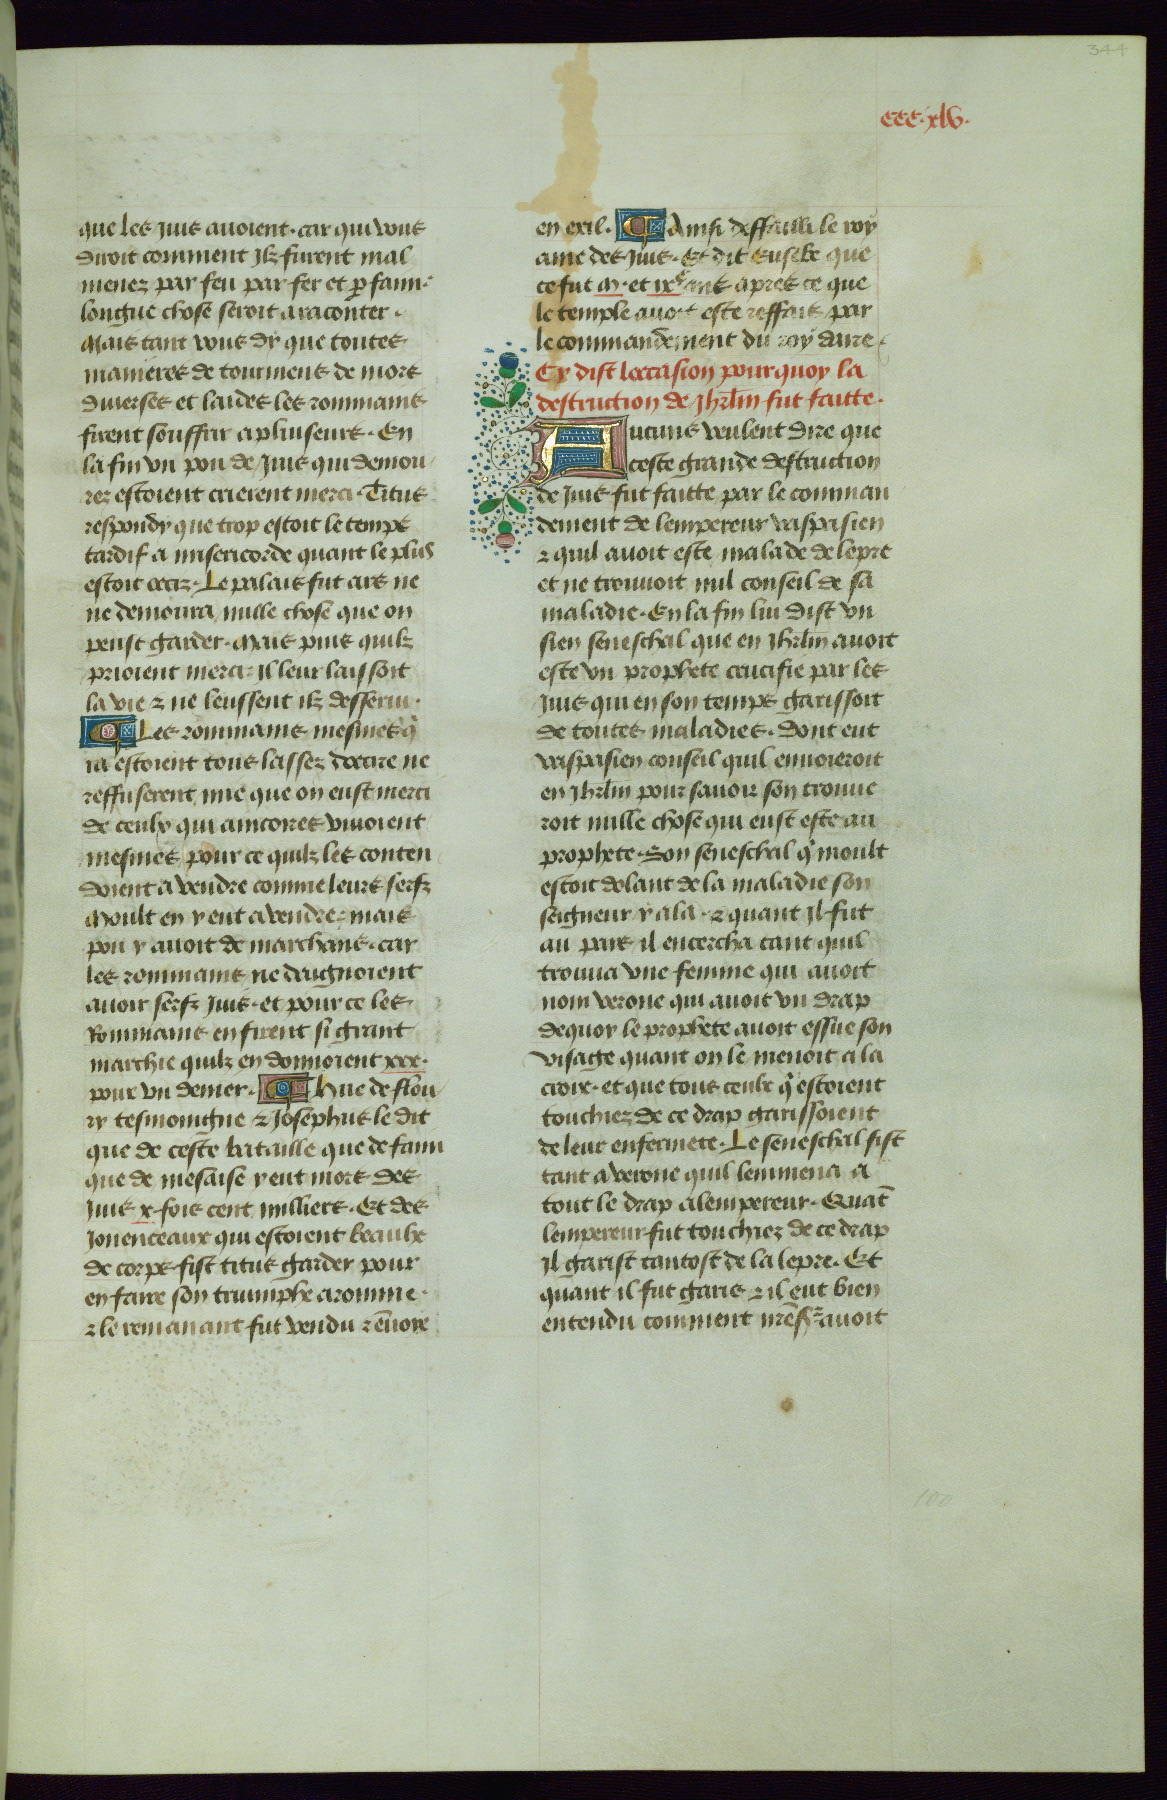 344
ccc.xlv.
que les Juis avoient. car qui vous
diroit comment Ilz furent mal
menez par feu par fer et p fam.
longue chose seroit a raconter.
Mais tant vous dy que toutes
manieres de tourmens de mors
diverses et laides les rommains
firent souffrir a pluiseurs. En
la fin un pou de Juis qui demou
rez estoient crierent merci. Titus
respondy que trop estoit le temps
tardif a misericorde quant le plus
estoit occiz. Le palais fut ars ne
ne demoura nulle chose que on
peust garder. Mais puis quilz
prioient merci il leur laissoit
la vie ⁊ ne leussent ilz desservi.
Les rommains mesmes q̇
ia estoient tous lassez doccire ne
reffuserent mie que on eust merci
de ceulx qui aincores vivoient
mesmes pour ce quilz les conten
doient a vendre comme leurs serfz
Moult en y eut a vendre. mais
pou y avoit de marchans. car
les rommains ne daignoient
avoir serfz Juis. et pour ce les
Rommains en firent si grant
marchie quilz en donnoient xxx.
pour un denier. Hue de flou
ry tesmoingne ⁊ Josephus le dit
que de ceste bataille que de faim
que de mesaise y eut mors des
Juis x. fois cent milliers. Et des
Jouenceaux qui estoient beaulx
de corps fist titus garder pour
en faire son triumphe a romme.
⁊ le remanant fut vendu ⁊ ēvoie
en exil. Ainsi deffailli le roy
ame des Juis. Et dit Eusebe que
ce fut M. et ixᶜ ans apres ce que
le temple avoit este reffais par
le commandement du roy daire.
Cy dist loccasion pour quoy la
destruction de Jhrlm fut faitte.
Aucuns veulent dire que
ceste grande destruction
de Juis fut faitte par le comman
dement de lempereur vaspasien
⁊ quil avoit este malade de lepre
et ne trouvoit nul conseil de sa
maladie. En la fin lui dist un
sien seneschal que en Jhrlm avoit
este un prophete crucifie par les
Juis qui en son temps garissoit
de toutes maladies. Dont eut
vaspasien conseil quil envoieroit
en Jhrlm pour savoir son trouve
roit nulle chose qui eust este au
prophete. Son seneschal q̇ moult
estoit dolant de la maladie son
seigneur y ala. ⁊ quant Il fut
au pais il encercha tant quil
trouva une femme qui avoit
nom verone qui avoit un drap
dequoy le prophete avoit essue son
visage quant on le menoit a la
croix. et que tous ceulx q̇ estoient
touchiez de ce drap garissoient
de leur enfermete. Le seneschal fist
tant a verone quil lemmena a
tout le drap a lempereur. Quāt
lempereur fut touchiez de ce drap
Il garist tantost de la lepre. Et
quant il fut garis ⁊ il eut bien
entendu comment nrēsr̄ avoit
100